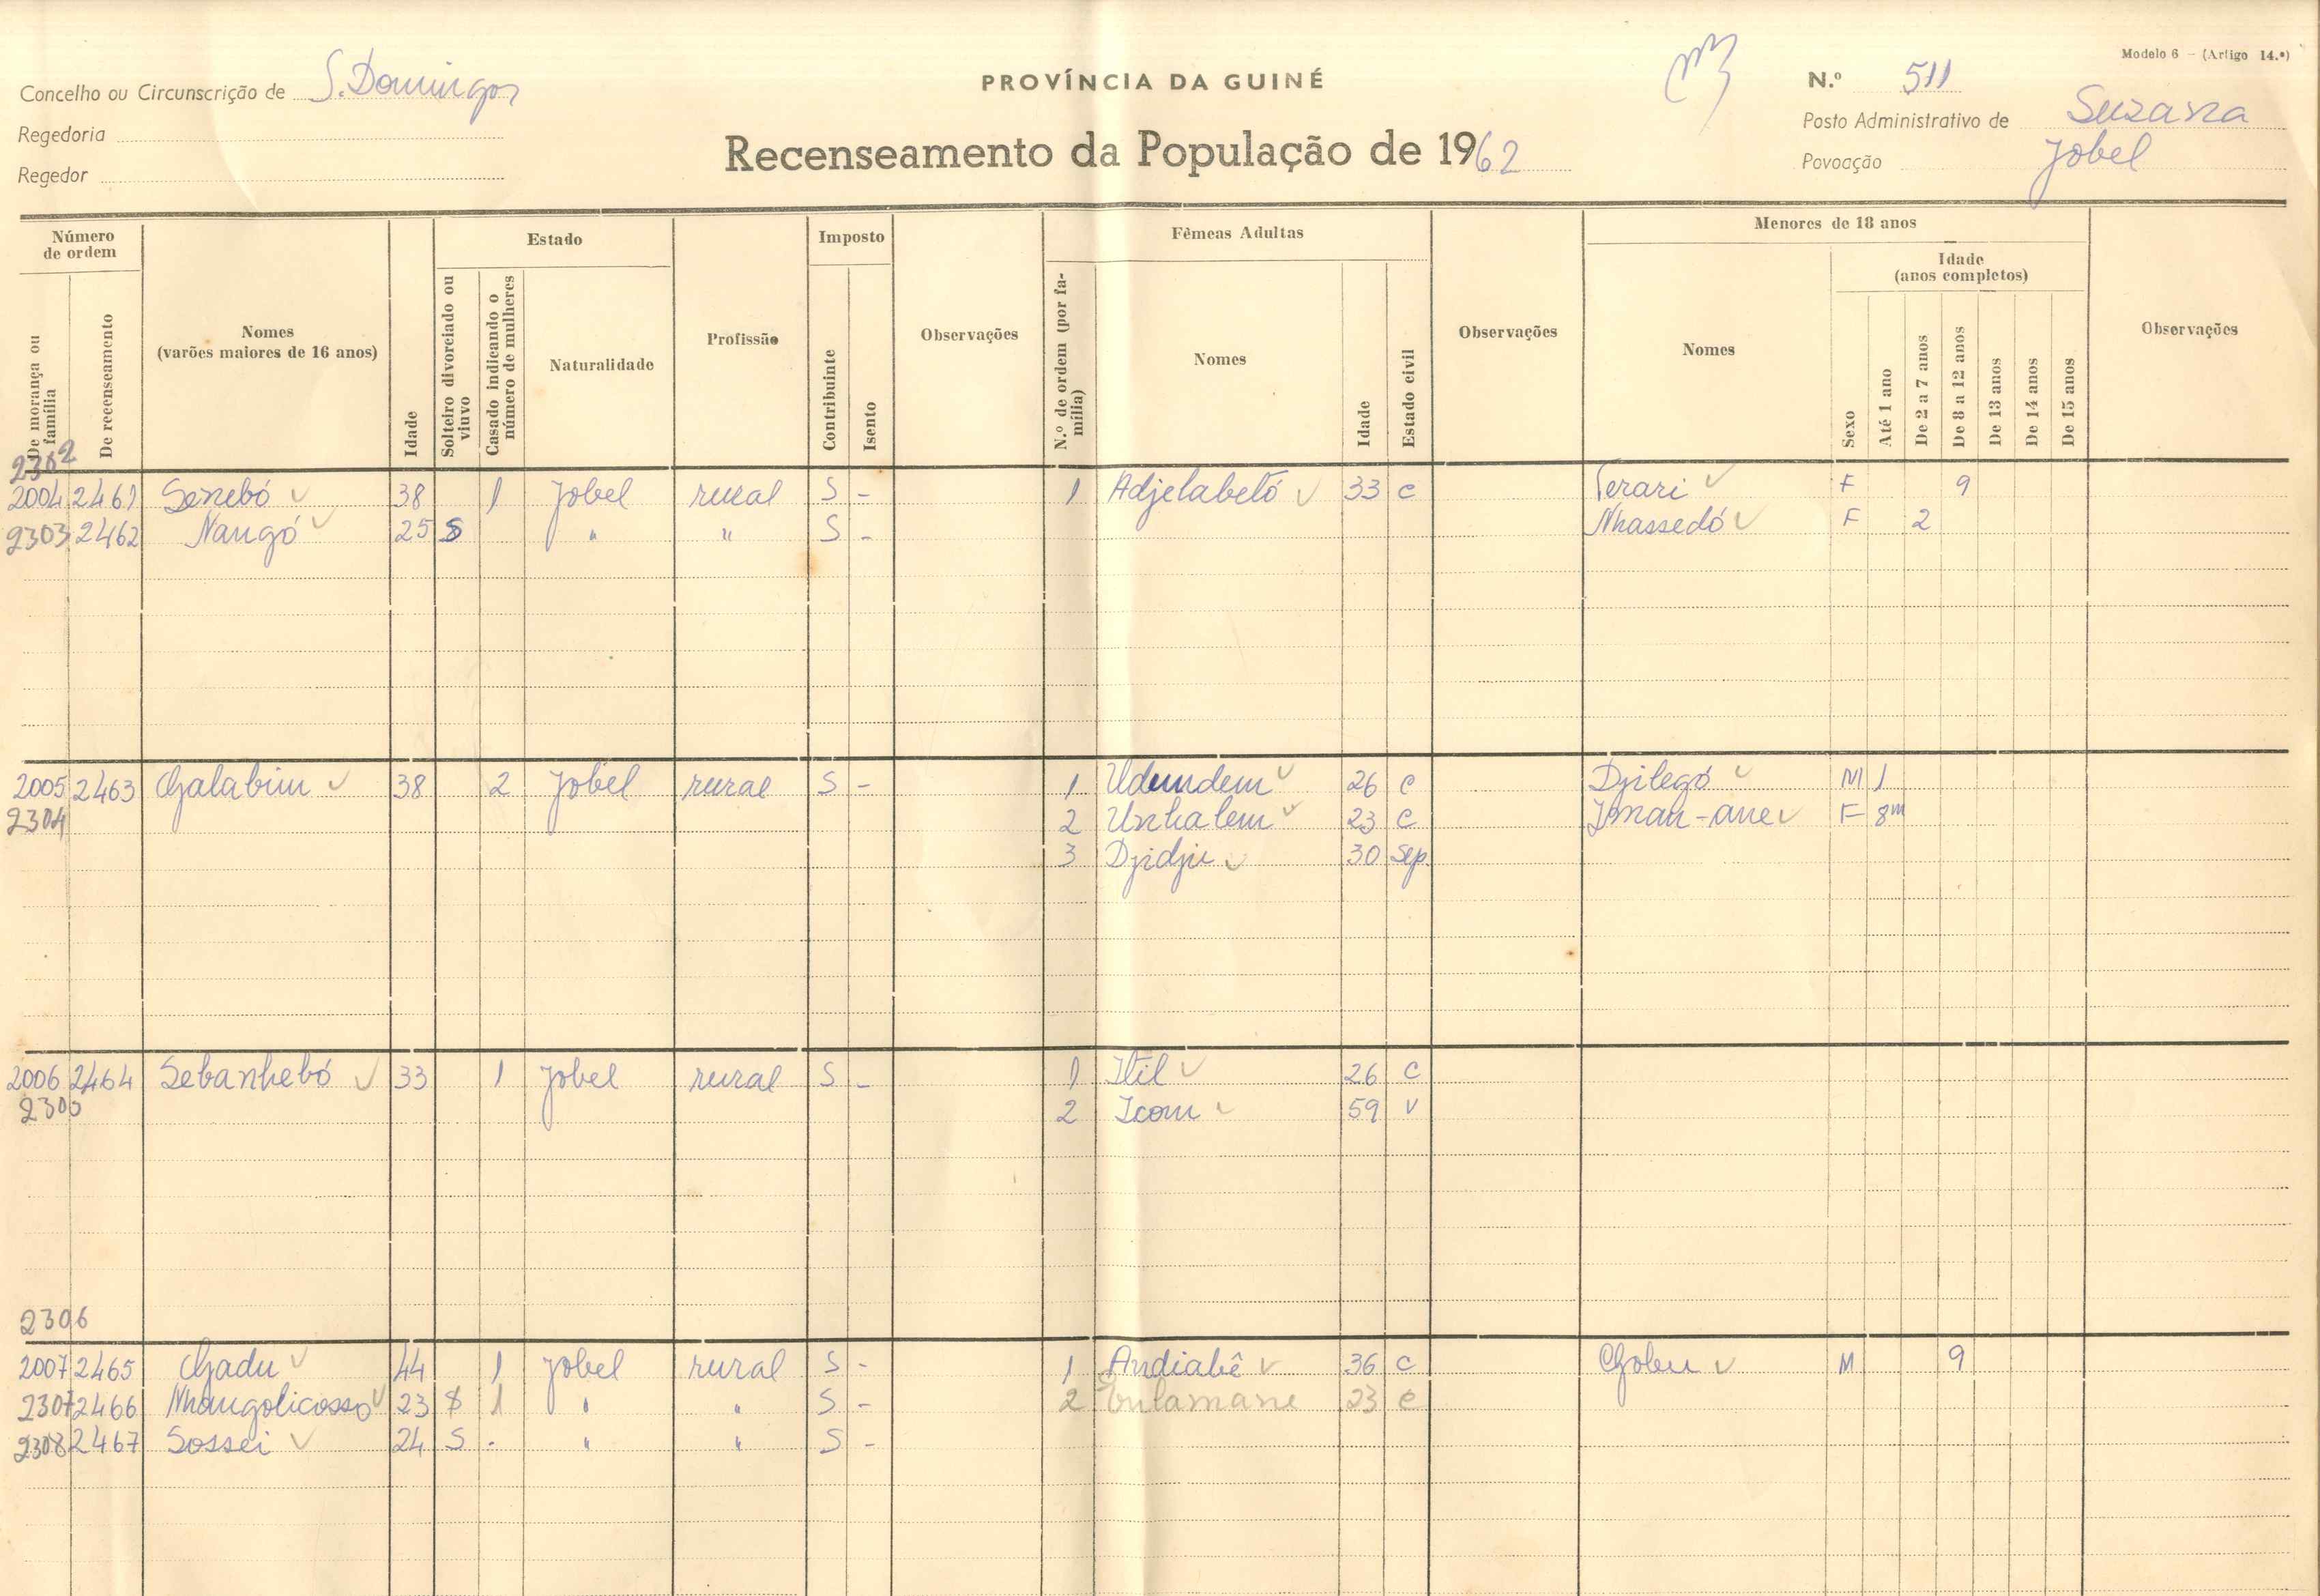 Modelo 6 — (Artigo 14.º)
Concelho ou Circunscrição de S. Domingos
PROVÍNCIA DA GUINÉ
N.º 511
Regedoria
Posto Administrativo de Suzana
Regedor
Recenseamento da População de 1962
Povoação Jobel
Número de ordem
Estado
Imposto
Fêmeas Adultas
Menores de 18 anos
Idade (anos completos)
De morança ou família
De recenseamento
Nomes (varões maiores de 16 anos)
Idade
Solteiro divorciado ou viuvo
Casado indicando o número de mulheres
Naturalidade
Profissão
Contribuinte
Isento
Observações
N.º de ordem (por família)
Nomes
Idade
Estado civil
Observações
Nomes
Sexo
Até 1 ano
De 2 a 7 anos
De 8 a 12 anos
De 13 anos
De 14 anos
De 15 anos
Observações
2302
2004 2461 Senebó 38 1 Jobel rural S - 1 Adjelabetó 33 c Terari F 9
2303 2462 Nangó 25 S " " S - Nhassedó F 2
2005 2463 Galabim 38 2 Jobel rural S - 1 Udemdem 26 c Djilegó M 1
2304 2 Unhalem 23 c Iman-ane F 8m
3 Djidju 30 Sep.
2006 2464 Sebanhebó 33 1 Jobel rural S - 1 Itil 26 c
2305 2 Icom 59 v
2306
2007 2465 Gadu 44 1 Jobel rural S - 1 Andiabê 36 c Gobeu M 9
2307 2466 Nhangolicosso 23 S 1 " " S - 2 23 c
2308 2467 Sossei 24 S - " " S -